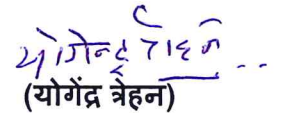 योगेन्द्र त्रेहन
(योगेंद्र त्रेहन)